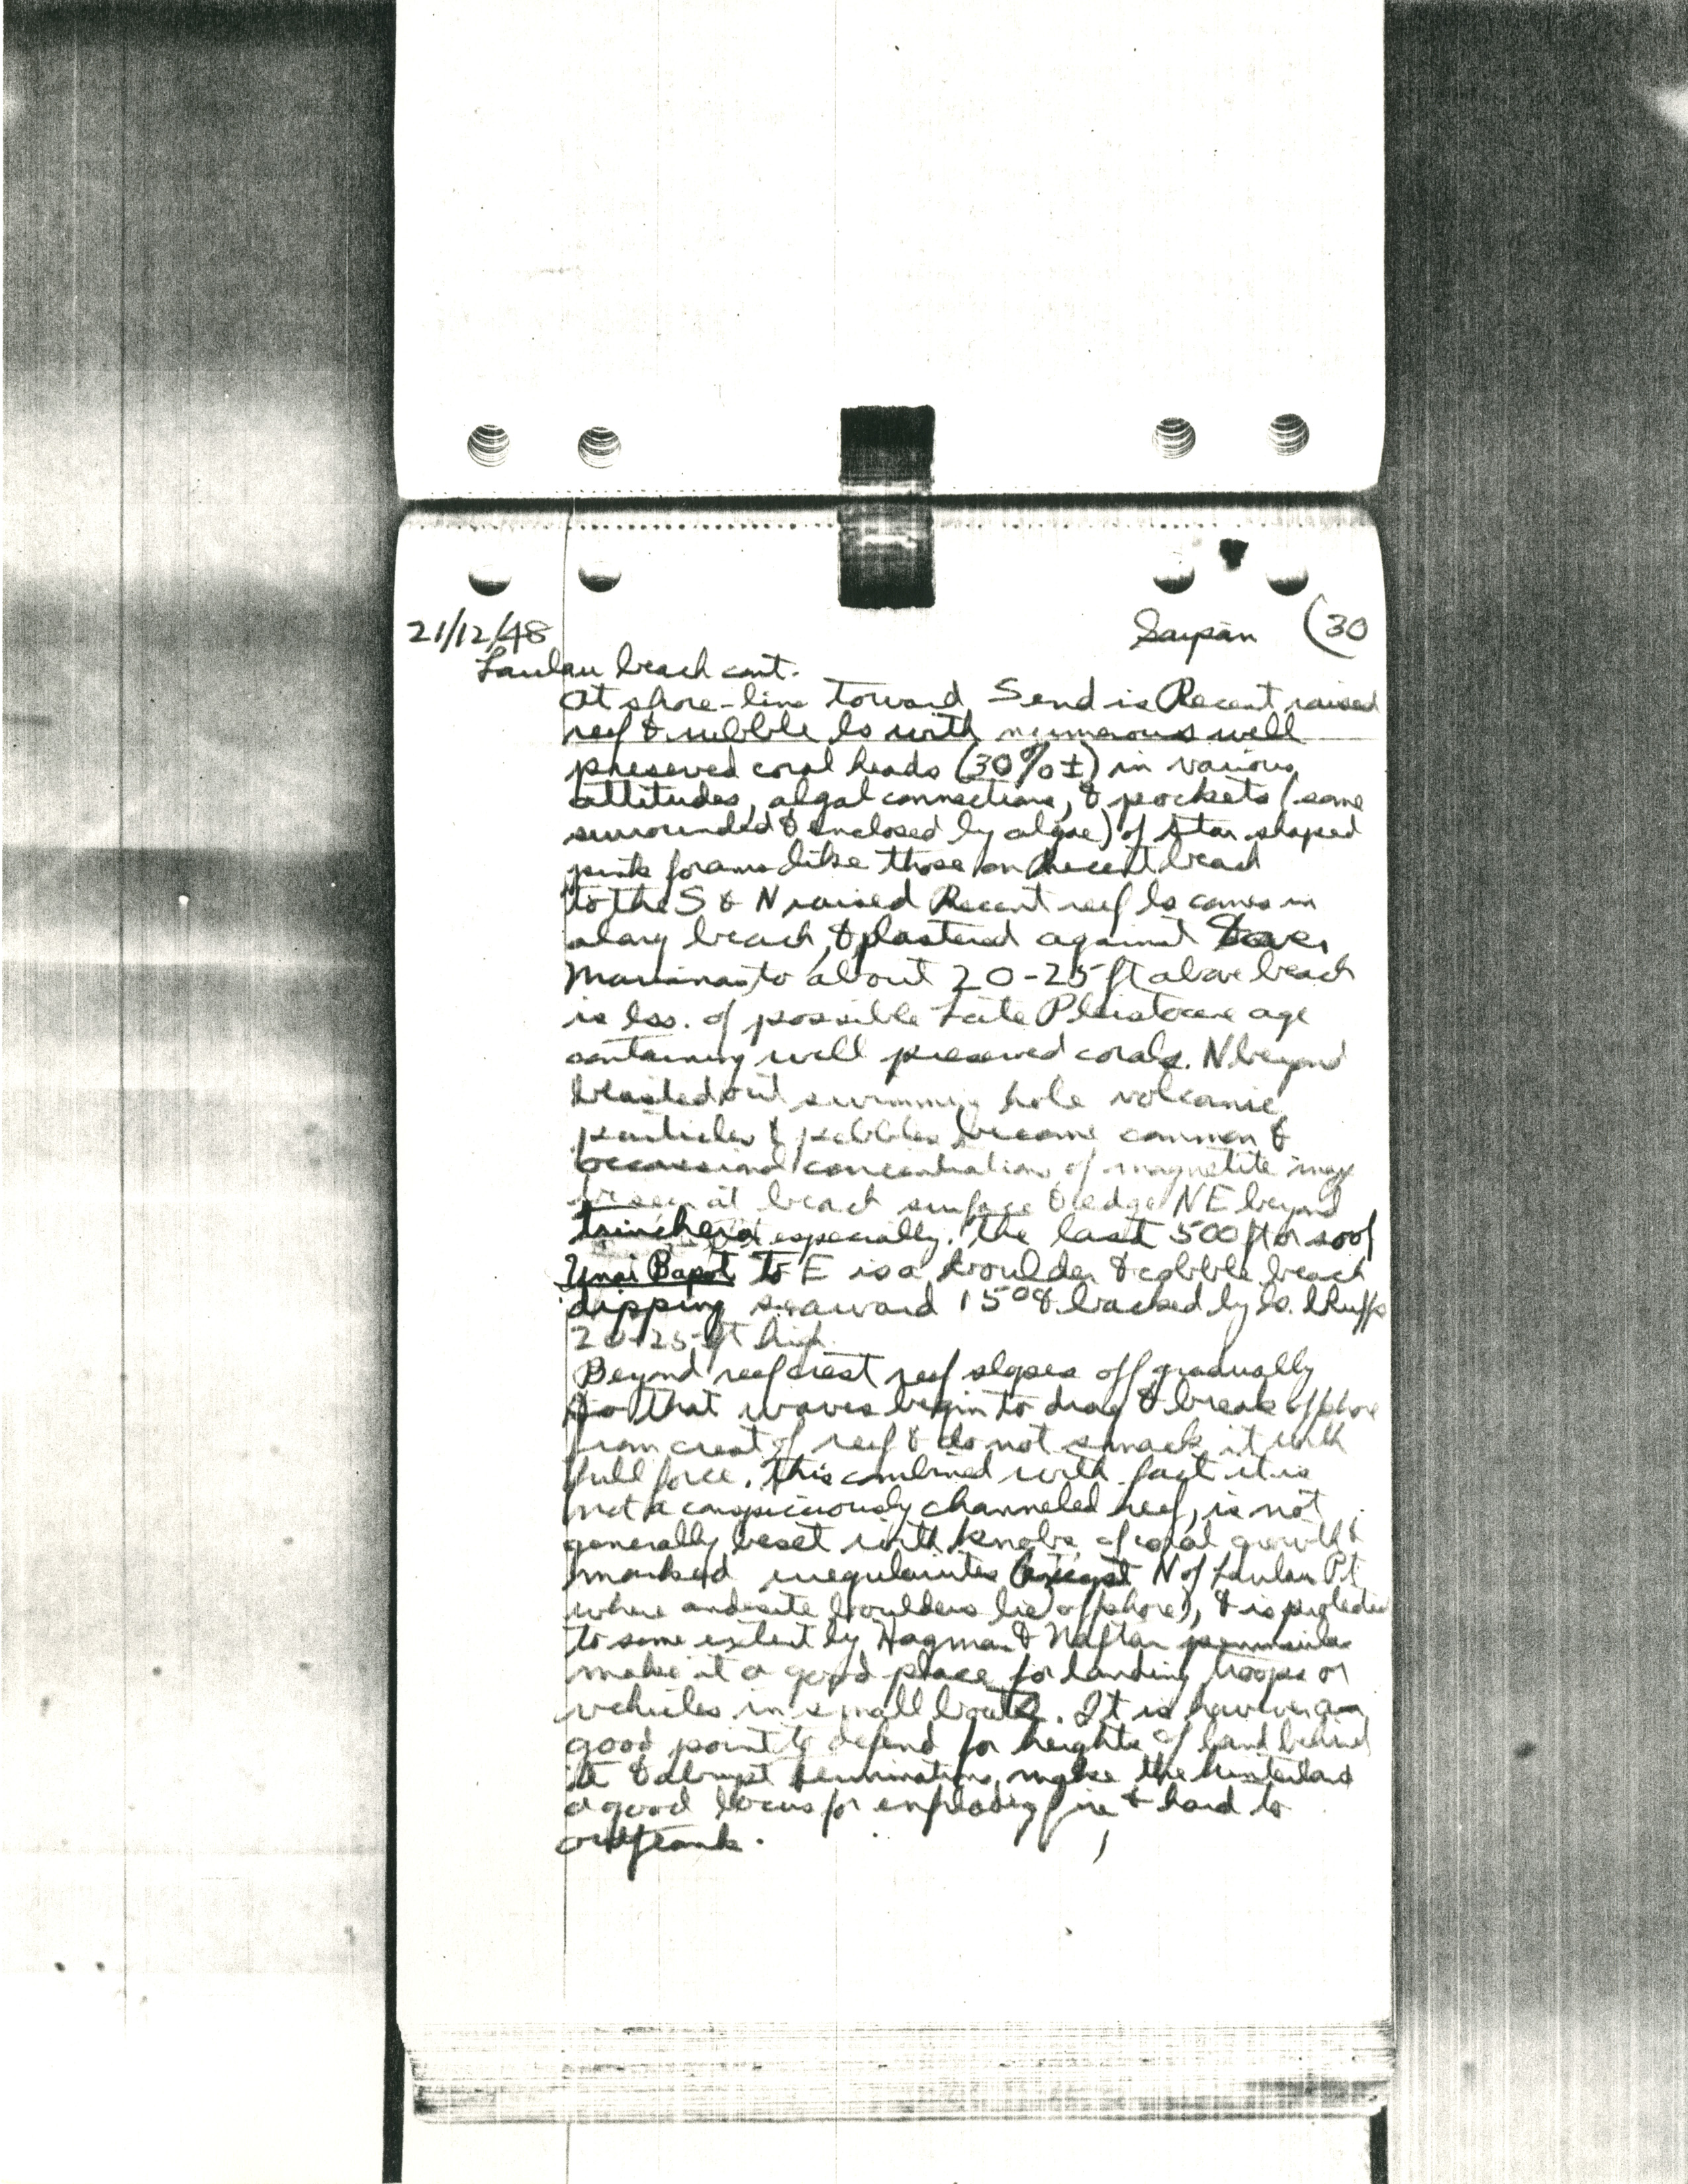 21/12/48 Saipan (30
Laulau beach cont.
At shore-line toward S end is Recent raised
reef & rubble ls with numerous well
preserved coral heads (30%±) in various
attitudes, algal connections, & pockets (some
surrounded & enclosed by algae) of star shaped
pink forams like those on Recent beach
to the S & N raised Recent reef ls comes in
along beach, & plastered against
Mariana to about 20-25 ft above beach
is lss. of possible Late Pleistocene age
containing well preserved corals. N beyond
blasted out swimming hole volcanic
particles & pebbles become common &
occasional concentrations of magnetite may
be seen at beach surface & edge NE beyond
trinchera especially. The last 500 ft or so of
Unai Bapot to E is a boulder & cobble beach
dipping seaward 15° & backed by ls. bluffs
20-25 ft high.
Beyond reef crest reef slopes off gradually
so that waves begin to drag & break offshore
from crest of reef & do not smack it with
full force. This combined with fact it is
not a conspicuously channeled reef, is not
generally beset with knobs of coral growth &
marked irregularities N of Laulau Pt
where andesite boulders lie offshore), & is protected
to some extent by Hagman & Naftan peninsula
make it a good place for landing troops or
vehicles in small boats. It is however a
good point to defend for heights of land behind
it & abrupt terminations make the hinterland
a good locus for enfilading fire & hard to
outflank.